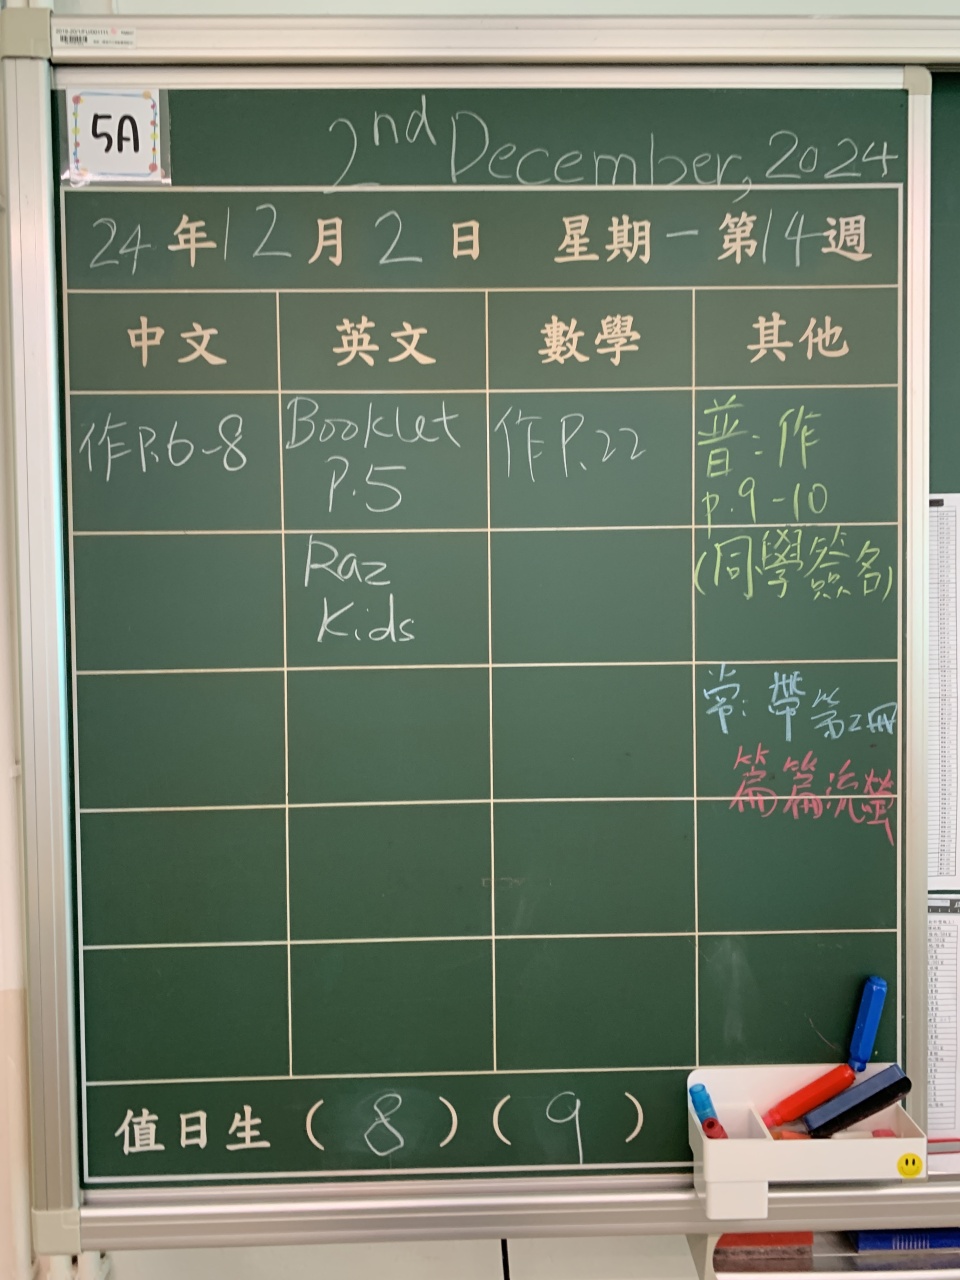 5A
2nd December, 2024
24年12月2日 星期一 第14週
中文 英文 數學 其他
作P.6-8
Booklet
P.5
Raz
Kids
作P.22
普：作
p.9-10
(同學簽名)
常：帶第2冊
篇篇流螢
值日生 (8) (9)